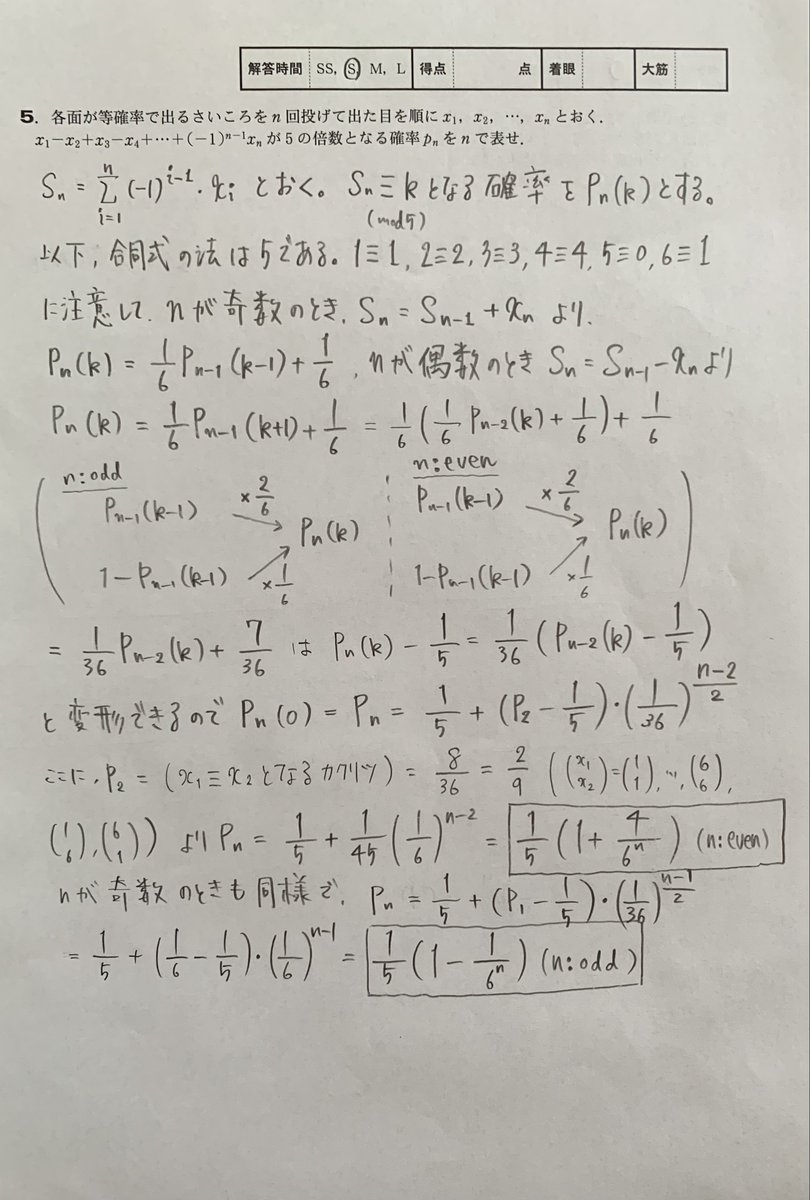 解答時間 SS, S, M, L 得点 点 着眼 大筋
5. 各面が等確率で出るさいころをn回投げて出た目を順にx₁, x₂, …, xₙとおく.
x₁−x₂+x₃−x₄+…+(−1)ⁿ⁻¹xₙが5の倍数となる確率pₙをnで表せ.
Sₙ = Σ_{i=1}^{n} (-1)^{i-1}・xᵢ とおく。 Sₙ≡k となる確率をPₙ(k)とする。
(mod5)
以下, 合同式の法は5である。1≡1, 2≡2, 3≡3, 4≡4, 5≡0, 6≡1
に注意して. nが奇数のとき, Sₙ = Sₙ₋₁ + xₙ より.
Pₙ(k) = 1/6 Pₙ₋₁(k-1) + 1/6 , nが偶数のとき Sₙ = Sₙ₋₁ - xₙ より
Pₙ(k) = 1/6 Pₙ₋₁(k+1) + 1/6 = 1/6 (1/6 Pₙ₋₂(k) + 1/6) + 1/6
n:odd n:even
Pₙ₋₁(k-1) ×2/6 Pₙ(k) Pₙ₋₁(k-1) ×2/6 Pₙ(k)
1-Pₙ₋₁(k-1) ×1/6 1-Pₙ₋₁(k-1) ×1/6
= 1/36 Pₙ₋₂(k) + 7/36 は Pₙ(k) - 1/5 = 1/36 (Pₙ₋₂(k) - 1/5)
と変形できるので Pₙ(0) = Pₙ = 1/5 + (P₂ - 1/5)・(1/36)^{(n-2)/2}
ここに, P₂ = (x₁≡x₂となるカクリツ) = 8/36 = 2/9 ((x₁ x₂)=(1 1), …, (6 6),
(1 6), (6 1)) より Pₙ = 1/5 + 1/45 (1/6)^{n-2} = 1/5 (1 + 4/6ⁿ) (n:even)
nが奇数のときも同様で, Pₙ = 1/5 + (P₁ - 1/5)・(1/36)^{(n-1)/2}
= 1/5 + (1/6 - 1/5)・(1/6)^{n-1} = 1/5 (1 - 1/6ⁿ) (n:odd)